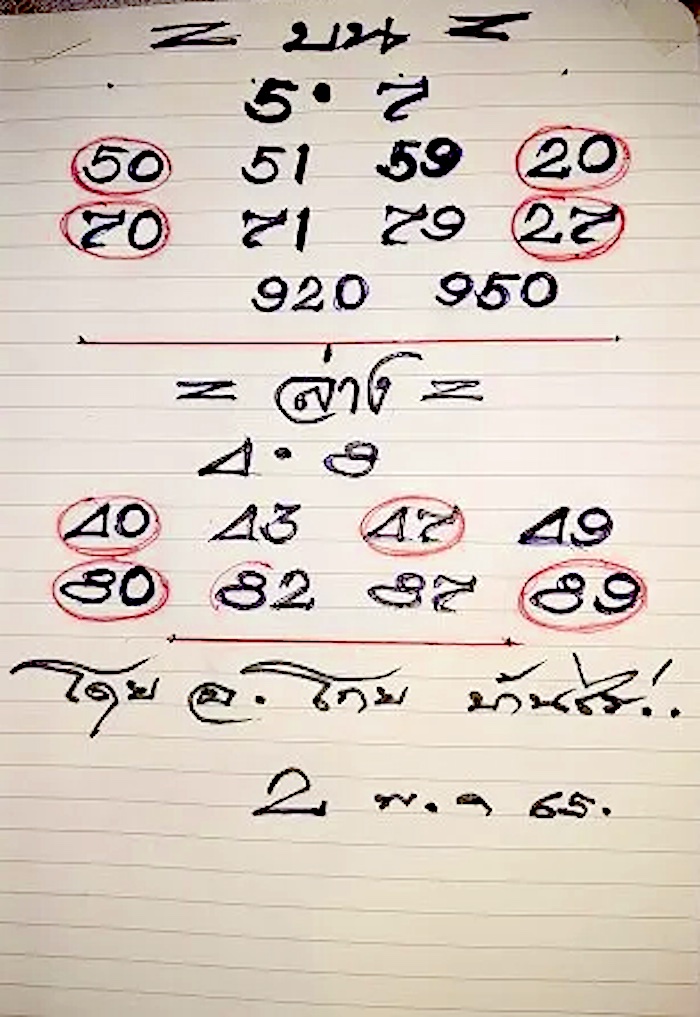 = บน =
5 . 7
50 51 59 20
70 71 79 27
920 950
= ล่าง =
4 . 8
40 43 47 49
80 82 87 89
โดย อ. โทย บ้านไร่..
2 พ.ย 65.